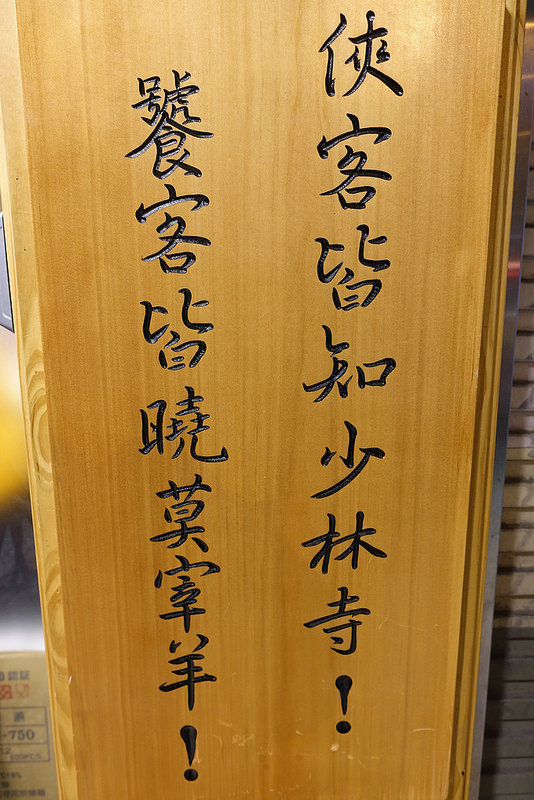 俠客皆知少林寺！
饕客皆曉莫宰羊！
認証
-750